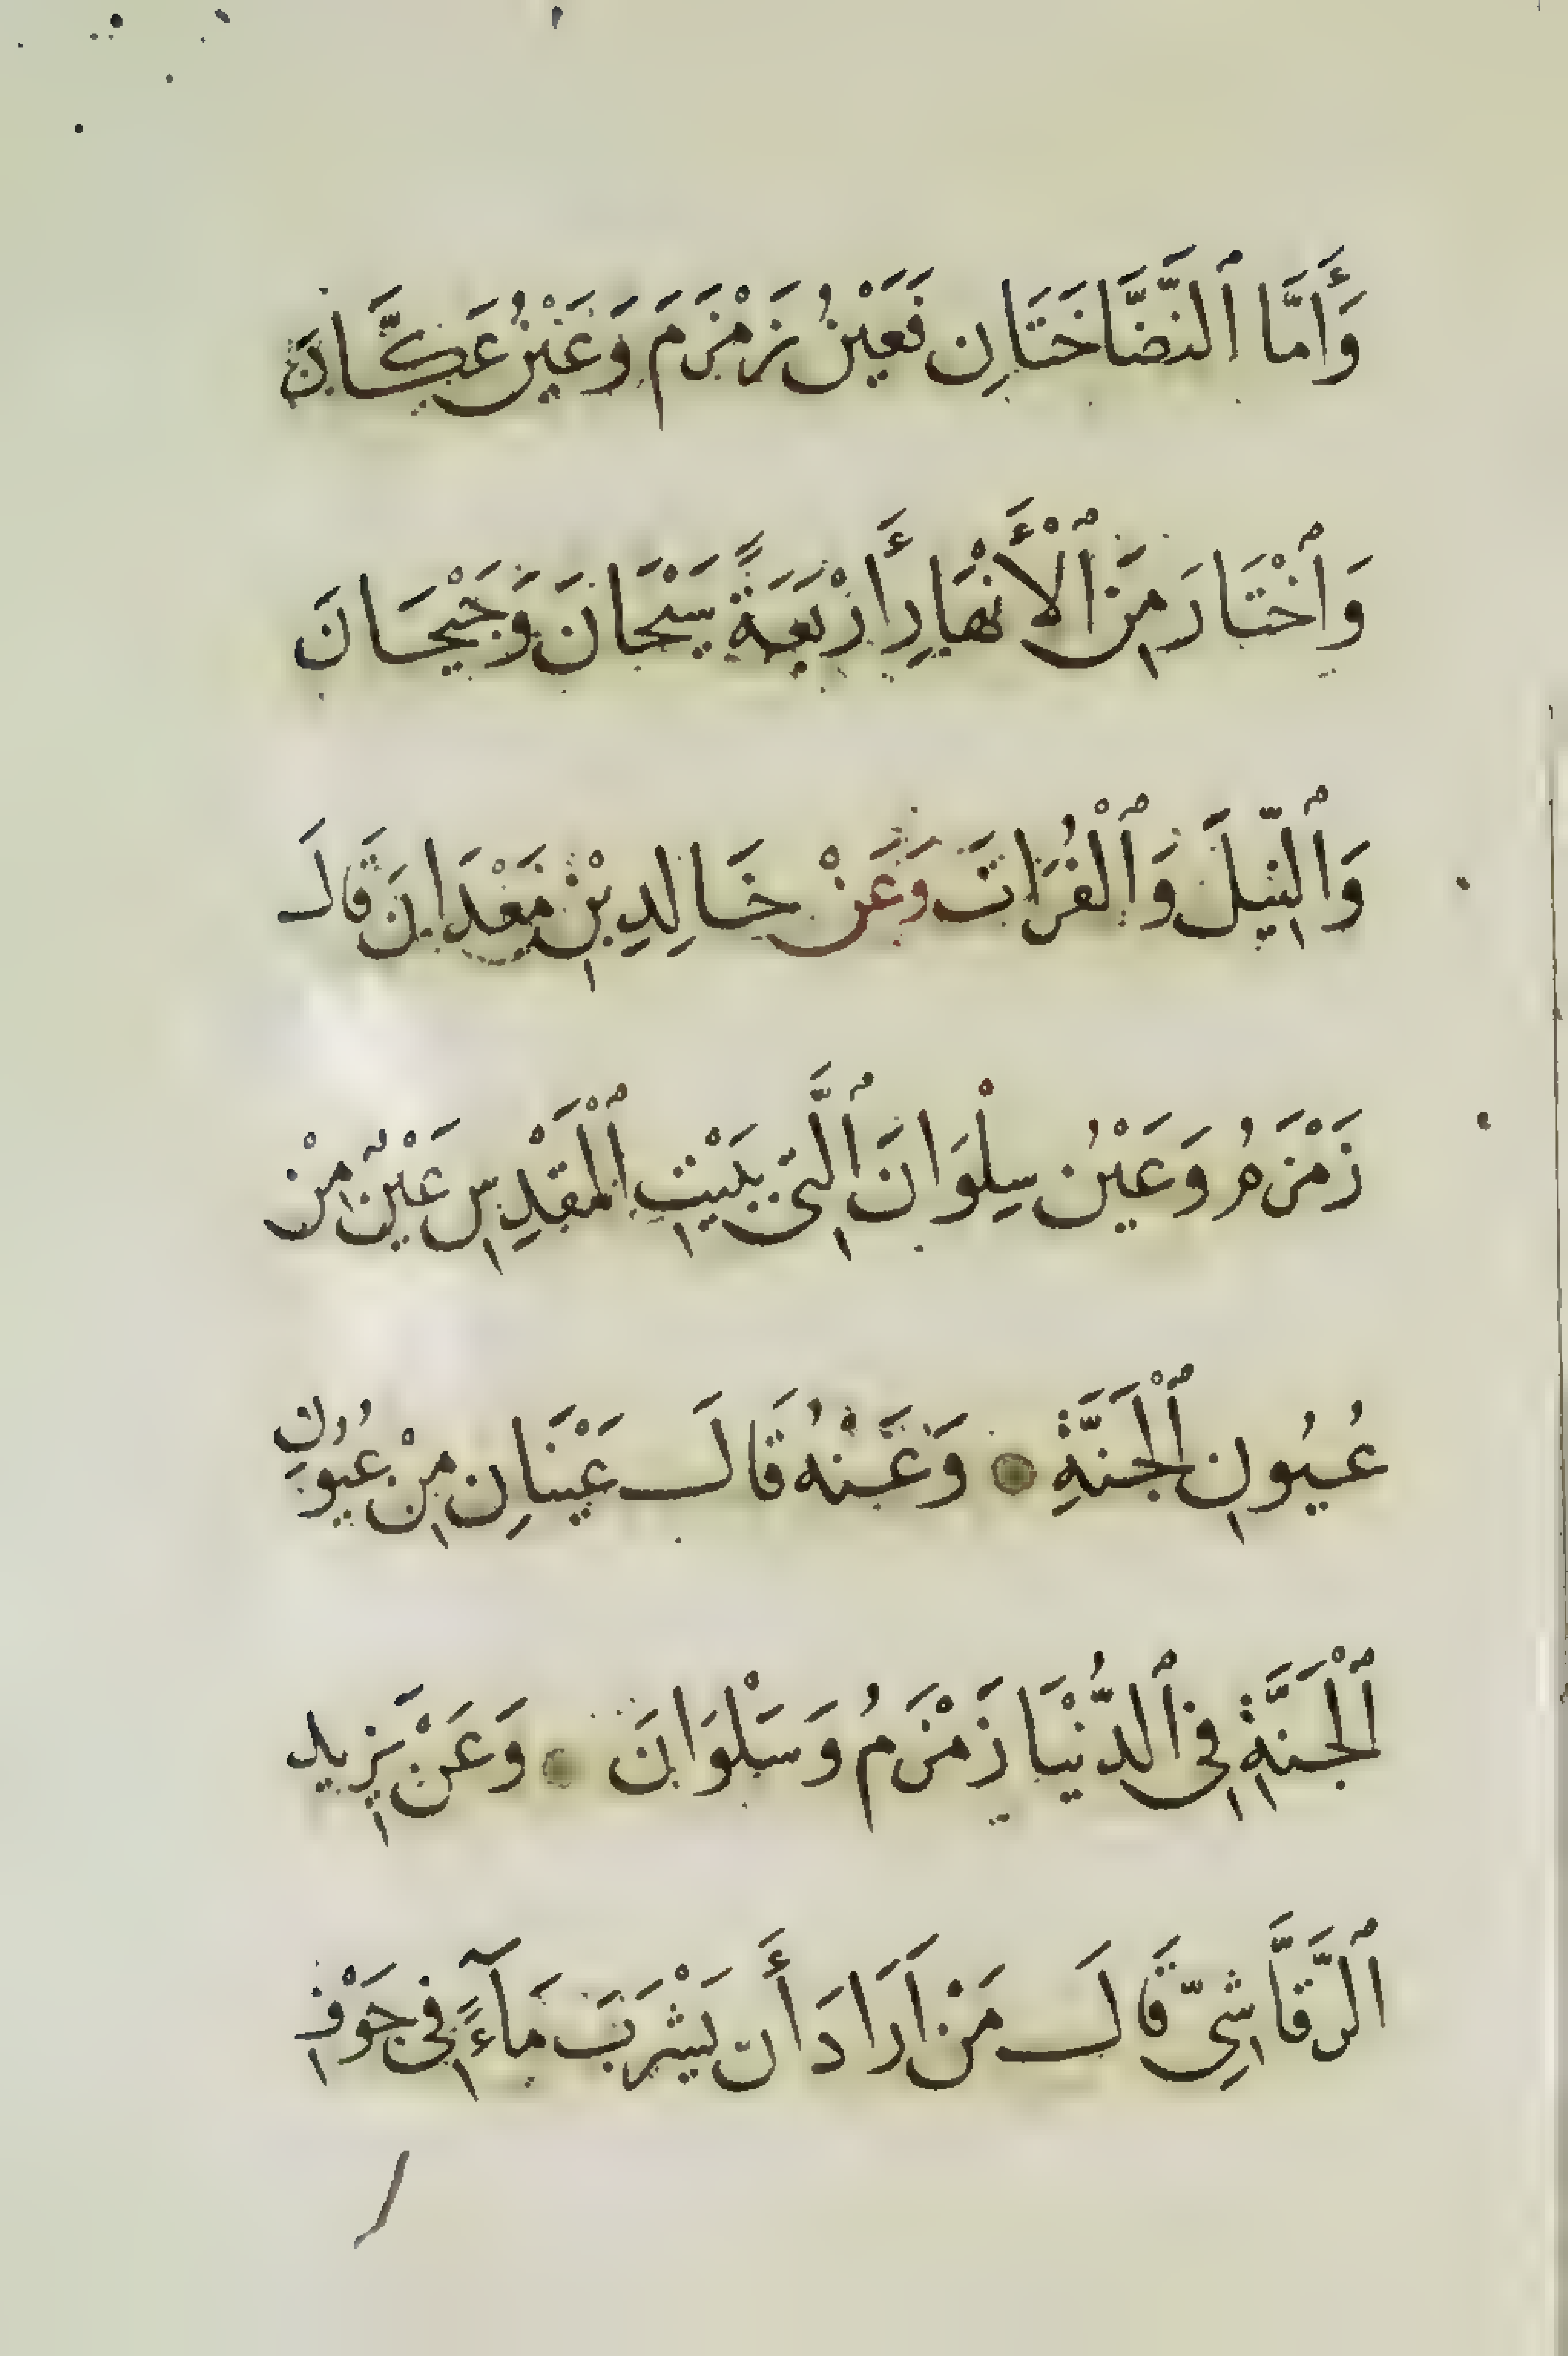 وَأَمَّا ٱلنَّضَّاخَتَانِ فَعَيْنُ زَمْزَمَ وَعَيْنُ عَكَّانَ
وَٱخْتَارَ مِنَ ٱلْأَنْهَارِ أَرْبَعَةً سَيْحَانَ وَجَيْحَانَ
وَٱلنِّيلَ وَٱلْفُرَاتَ وَعَنْ خَالِدِ بْنِ مَعْدَانَ قَالَ
زَمْزَمُ وَعَيْنُ سِلْوَانَ ٱلَّتِي بِبَيْتِ ٱلْمَقْدِسِ عَيْنٌ مِنْ
عُيُونِ ٱلْجَنَّةِ وَعَنْهُ قَالَ عَيْنَانِ مِنْ عُيُونِ
ٱلْجَنَّةِ فِي ٱلدُّنْيَا زَمْزَمُ وَسَلْوَانَ وَعَنْ يَزِيدِ
ٱلرَّقَّاشِيِّ قَالَ مَنْ اَرَادَ أَن يَشْرَبَ مَآءً فِي جَوْفِ